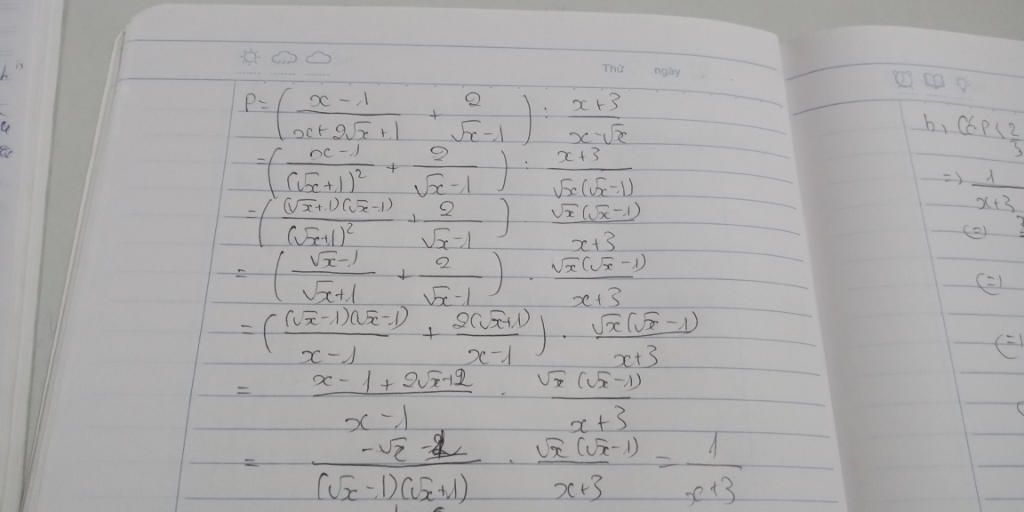 Thứ ngày
P = ( (x - 1)/(x + 2√x + 1) + 2/(√x - 1) ) : (x + 3)/(x - √x)
= ( (x - 1)/((√x + 1)²) + 2/(√x - 1) ) : (x + 3)/(√x(√x - 1))
= ( ((√x + 1)(√x - 1))/((√x + 1)²) + 2/(√x - 1) ) · (√x(√x - 1))/(x + 3)
= ( (√x - 1)/(√x + 1) + 2/(√x - 1) ) · (√x(√x - 1))/(x + 3)
= ( ((√x - 1)(√x - 1))/(x - 1) + (2(√x + 1))/(x - 1) ) · (√x(√x - 1))/(x + 3)
= (x - 1 + 2√x + 2)/(x - 1) · (√x(√x - 1))/(x + 3)
= (-√x - )/((√x - 1)(√x + 1)) · (√x(√x - 1))/(x + 3) = 1/(x + 3)
b, Có P < 2/3
=> 1/(x + 3)
(=)
(=)
(=)